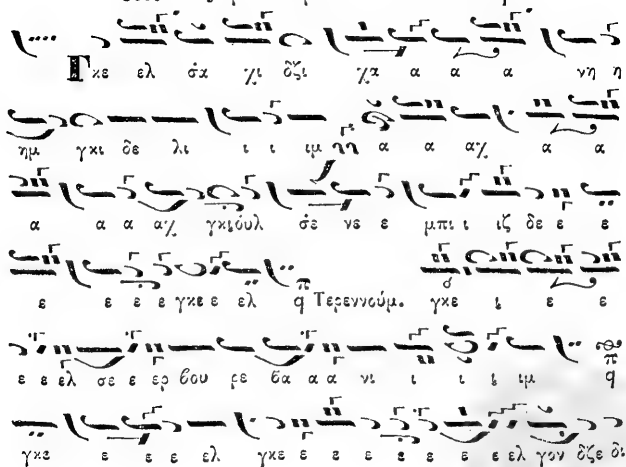 Γκε ελ σα χι δζι χα α α α νη η
ημ γκι δε λι ι ι ιμ α α αχ α α
α α α αχ γκιούλ σε νε ε μπι ι ιζ δε ε ε
ε ε ε ε γκε ε ελ Τερεννούμ. γκε ι ε ε
ε ε ελ σε ε ερ βου ρε βα α α νι ι ι ι ιμ
γκε ε ε ε ελ γκε ε ε ε ε ε ε ε ελ γον δζε δι